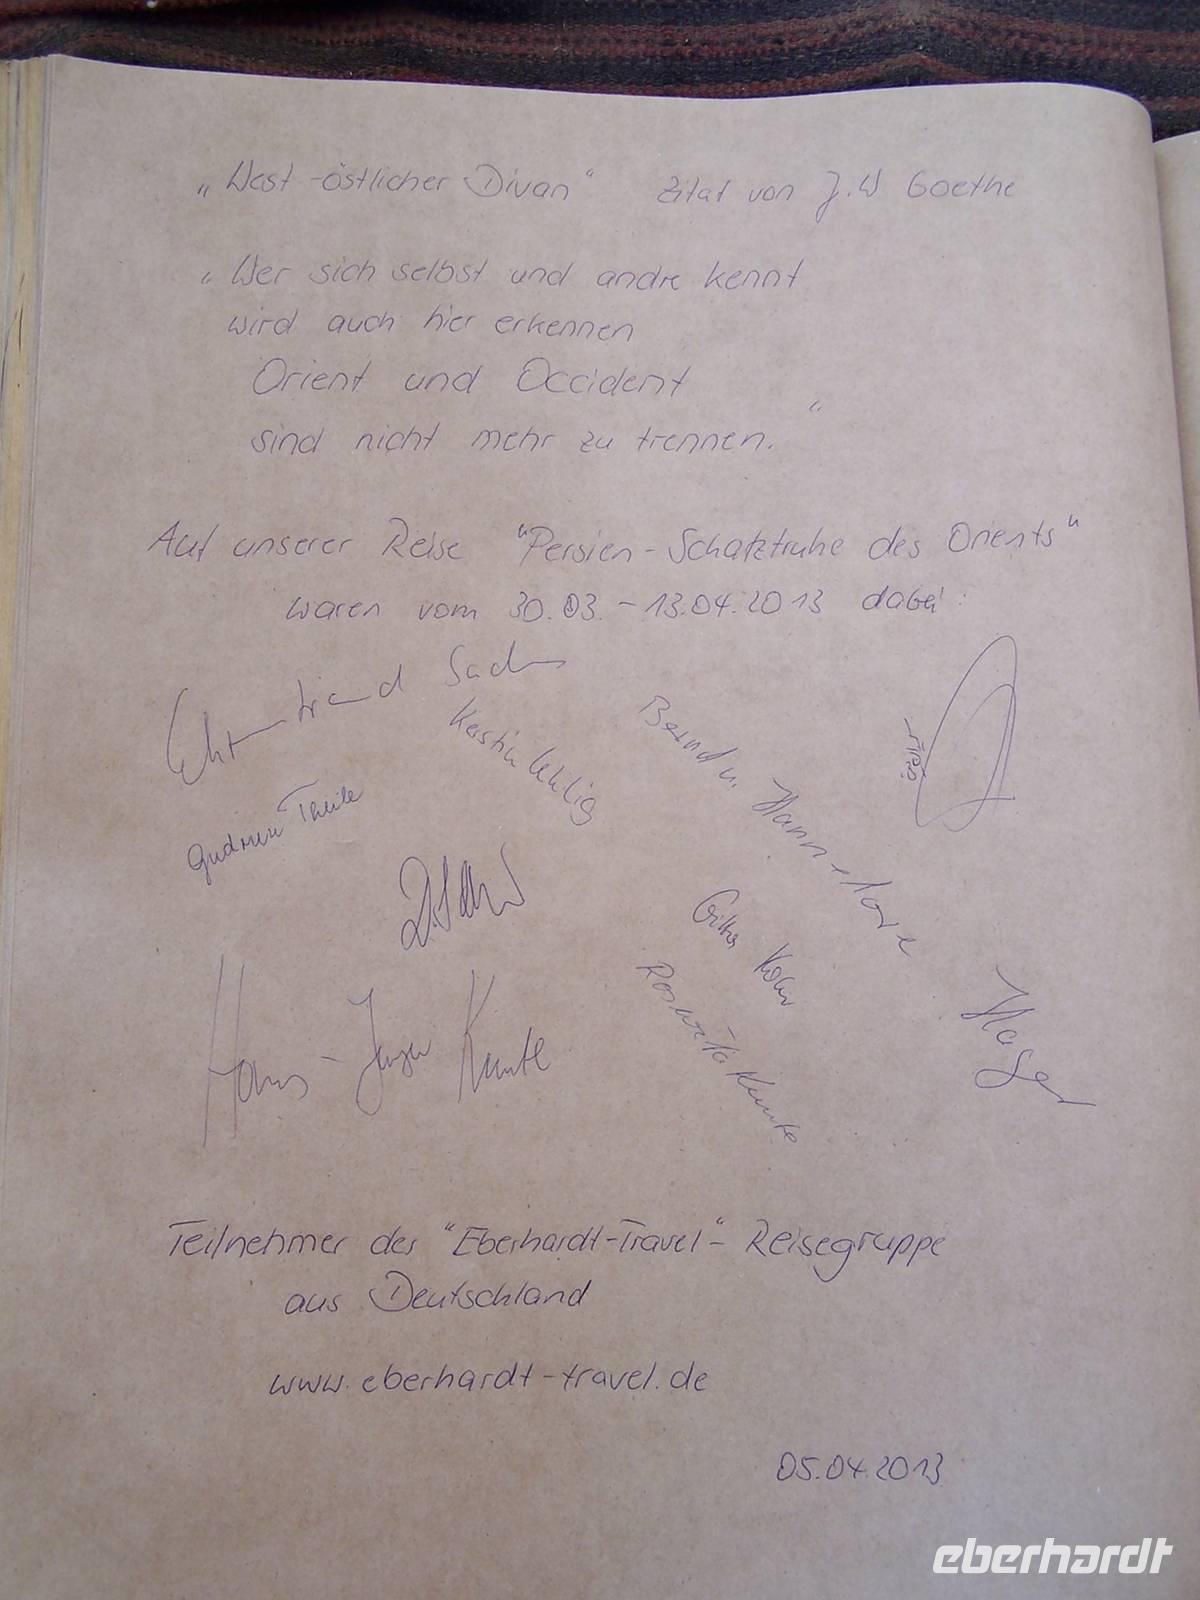 „West-östlicher Divan“ Zitat von J.W Goethe
„Wer sich selbst und andre kennt
wird auch hier erkennen
Orient und Occident
sind nicht mehr zu trennen.“
Auf unserer Reise "Persien-Schatztruhe des Orients"
waren vom 30.03.-13.04.2013 dabei:
Sachs
Kerstin Uhlig
Bernd u. Hannelore Hager
Gudrun Theile
Hans-Jürgen Kunte
Roswita Kunte
Teilnehmer der "Eberhardt-Travel"-Reisegruppe
aus Deutschland
www.eberhardt-travel.de
05.04.2013
eberhardt